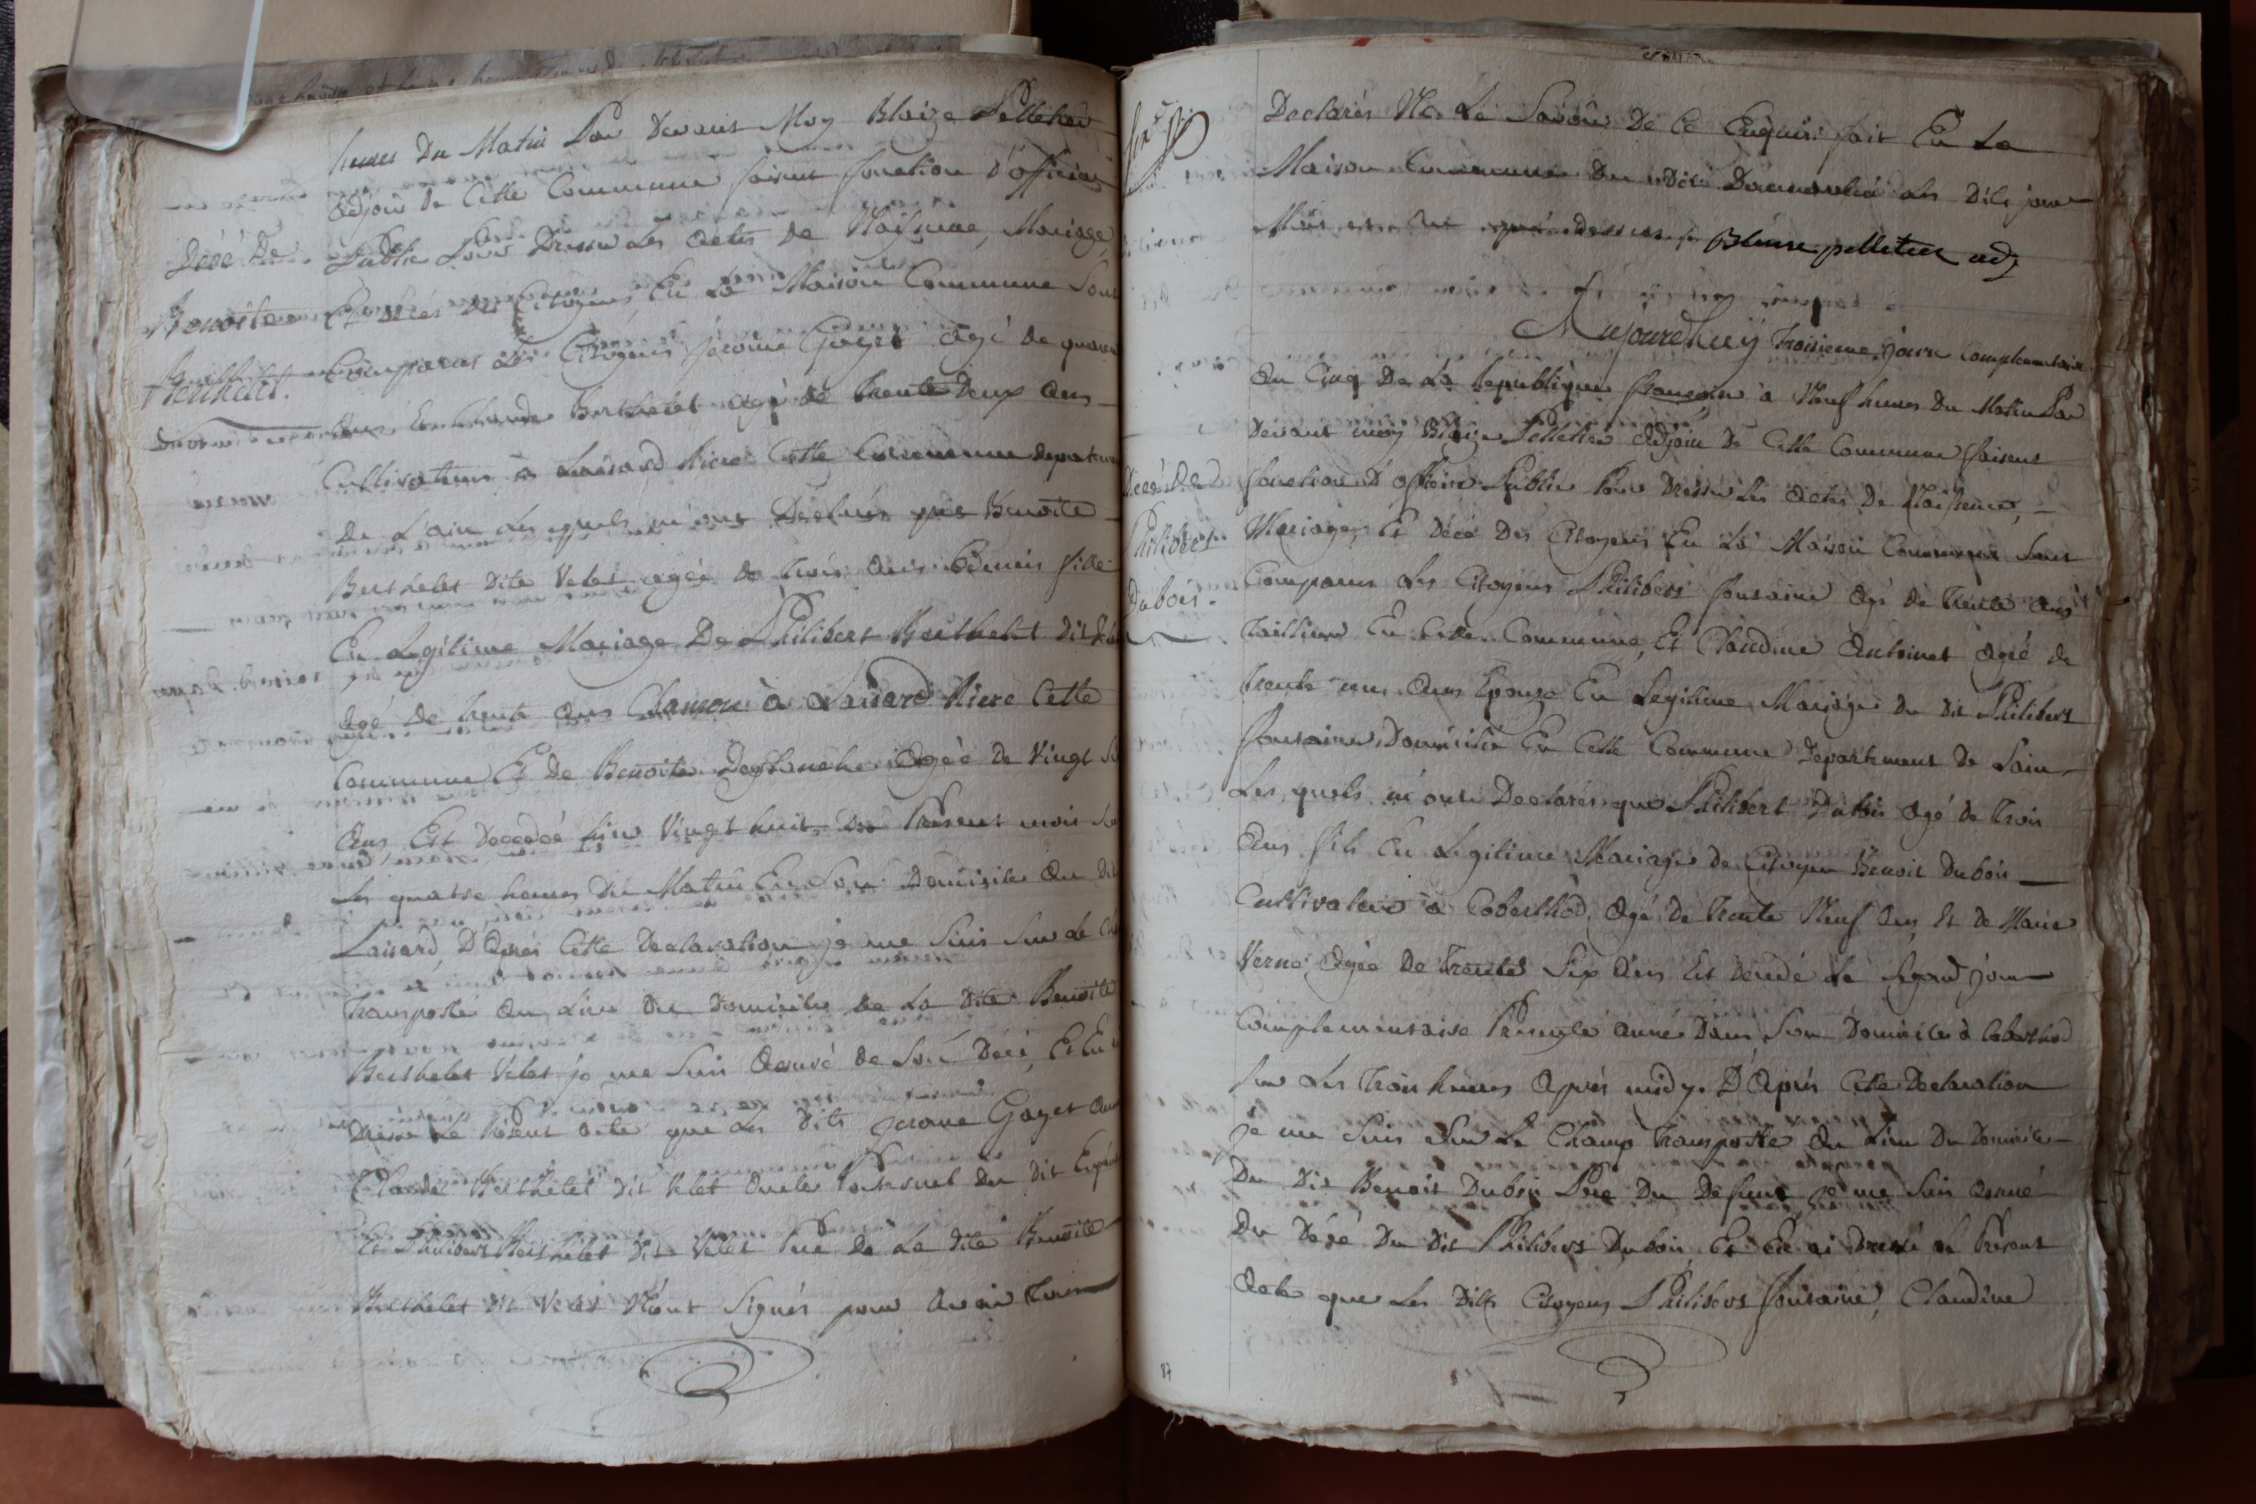 heures Du Matin Par Devant Moy Blaize Pelletier
adjoin de Cette Commune faisent fonction d'officier
Public Pour Dresser Les actes de Naissance, Mariage,
Et décés des Citoyens En La Maison Commune Sont
Comparus Les Citoyens Jerome Gayet agé de
ans Et Claude Berthelet agé de trente Deux ans
Cultivateurs à Laisard Riere Cette Commune departement
De Lain Les quels m'ont Declarés que Benoite
Berthelet Dite Velet agée de trois ans fille
En Legitime Mariage De Philibert Berthelet dit Velet
agé de trente ans à Laisard Riere Cette
Commune Et de Benoite agée de Vingt
ans Est Decedée hier Vingt huit du Present mois
Les quatre heures Du Matin En Son Domicile au dit
Laisard, D'Aprés Cette Declaration je me Suis Sur Le
Transporté au Lieu Du Domicile de La Dite Benoite
Berthelet Velet je me Suis assuré de Son Décé, Et En
Dressé Le Présent acte que Les Dits Jerome Gayet
Claude Berthelet dit Velet oncle Paternel
Et Philibert Berthelet Dit Velet Pere De La dite Benoite
Berthelet dit Velet N'ont Signés pour avoir Tous
Décé De
Benoite
Berthelet.
Declarés Ne Le Savoir De Ce Enquis fait En La
Maison Commune Du Dit Les Dits jour
Mois et An que dessus Blaise pelletier adj
Aujourdhuy Troisieme jour Complementaire
An Cinq De La Republique françoise à Neuf heures Du Matin Par
Devant moy Blaize Pelletier adjoin De Cette Commune faisent
fonction D'officier Public Pour Dresser Les actes De Naissence,
Mariage, Et Décé Des Citoyens En La Maison Commune Sont
Comparus Les Citoyens Philibert fontaine agé de Trente ans
Tailleur En Cette Commune, Et Claudine Antoinet agée de
trente un ans Epouse En Legitime Mariage du dit Philibert
fontaine, Domicilié En Cette Commune Departement De Lain
Les quels m'ont Declarés que Philibert Dubois agé de Trois
ans fils En Legitime Mariage de Citoyen Benoit Dubois
Cultivateur à Coberthod, agé De Trente Neuf ans Et de Marie
Verne agée De Trente Six ans Est decedé Le Segond jour
Complementaire Presente année Dans Son Domicile à Coberthod
Sur Les Trois heures Aprés midy. D'Aprés Cette Declaration
je me Suis Sur Le Champ Transporté Au Lieu Du Domicile
Du Dit Benoit Dubois Pere Du Defunt, je me Suis assuré
Du Décé Du Dit Philibert Dubois Et En ai Dressé Le Présent
Acte que Les Dits Citoyens Philibert fontaine, Claudine
Décé De
Philibert
Dubois.
87